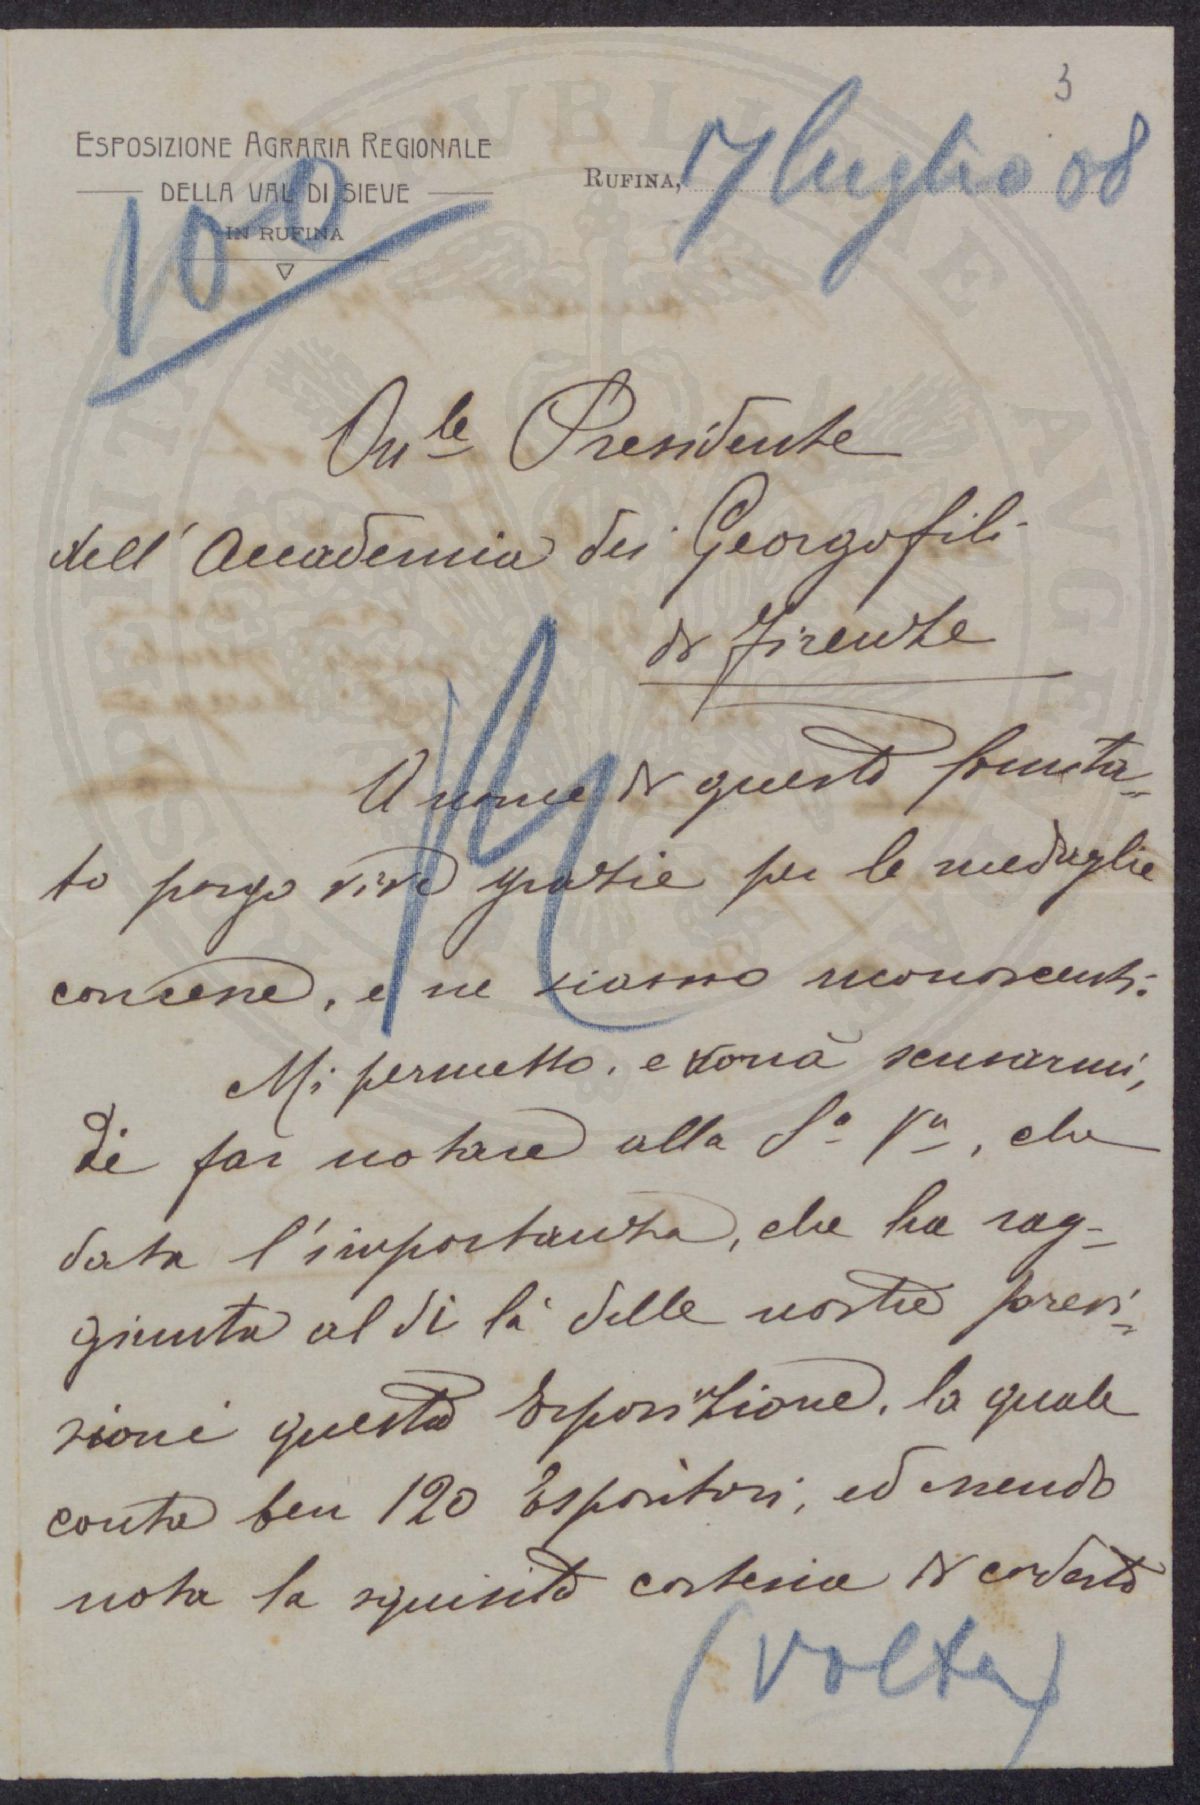 3
ESPOSIZIONE AGRARIA REGIONALE
DELLA VAL DI SIEVE
IN RUFINA
RUFINA, 17 luglio 08
100
On.le Presidente
dell'Accademia dei Georgofili
di Firenze
A nome di questo Comita=
to porgo vive grazie per le medaglie
concesse, e ne siamo riconoscenti.
Mi permetto, e vorrà scusarmi,
di far notare alla S.a V.a, che
data l'importanza, che ha rag=
giunta al di là delle nostre previ=
sioni questa Esposizione, la quale
conta ben 120 Espositori, ed essendo
nota la squisita cortesia di codesto
(volta)